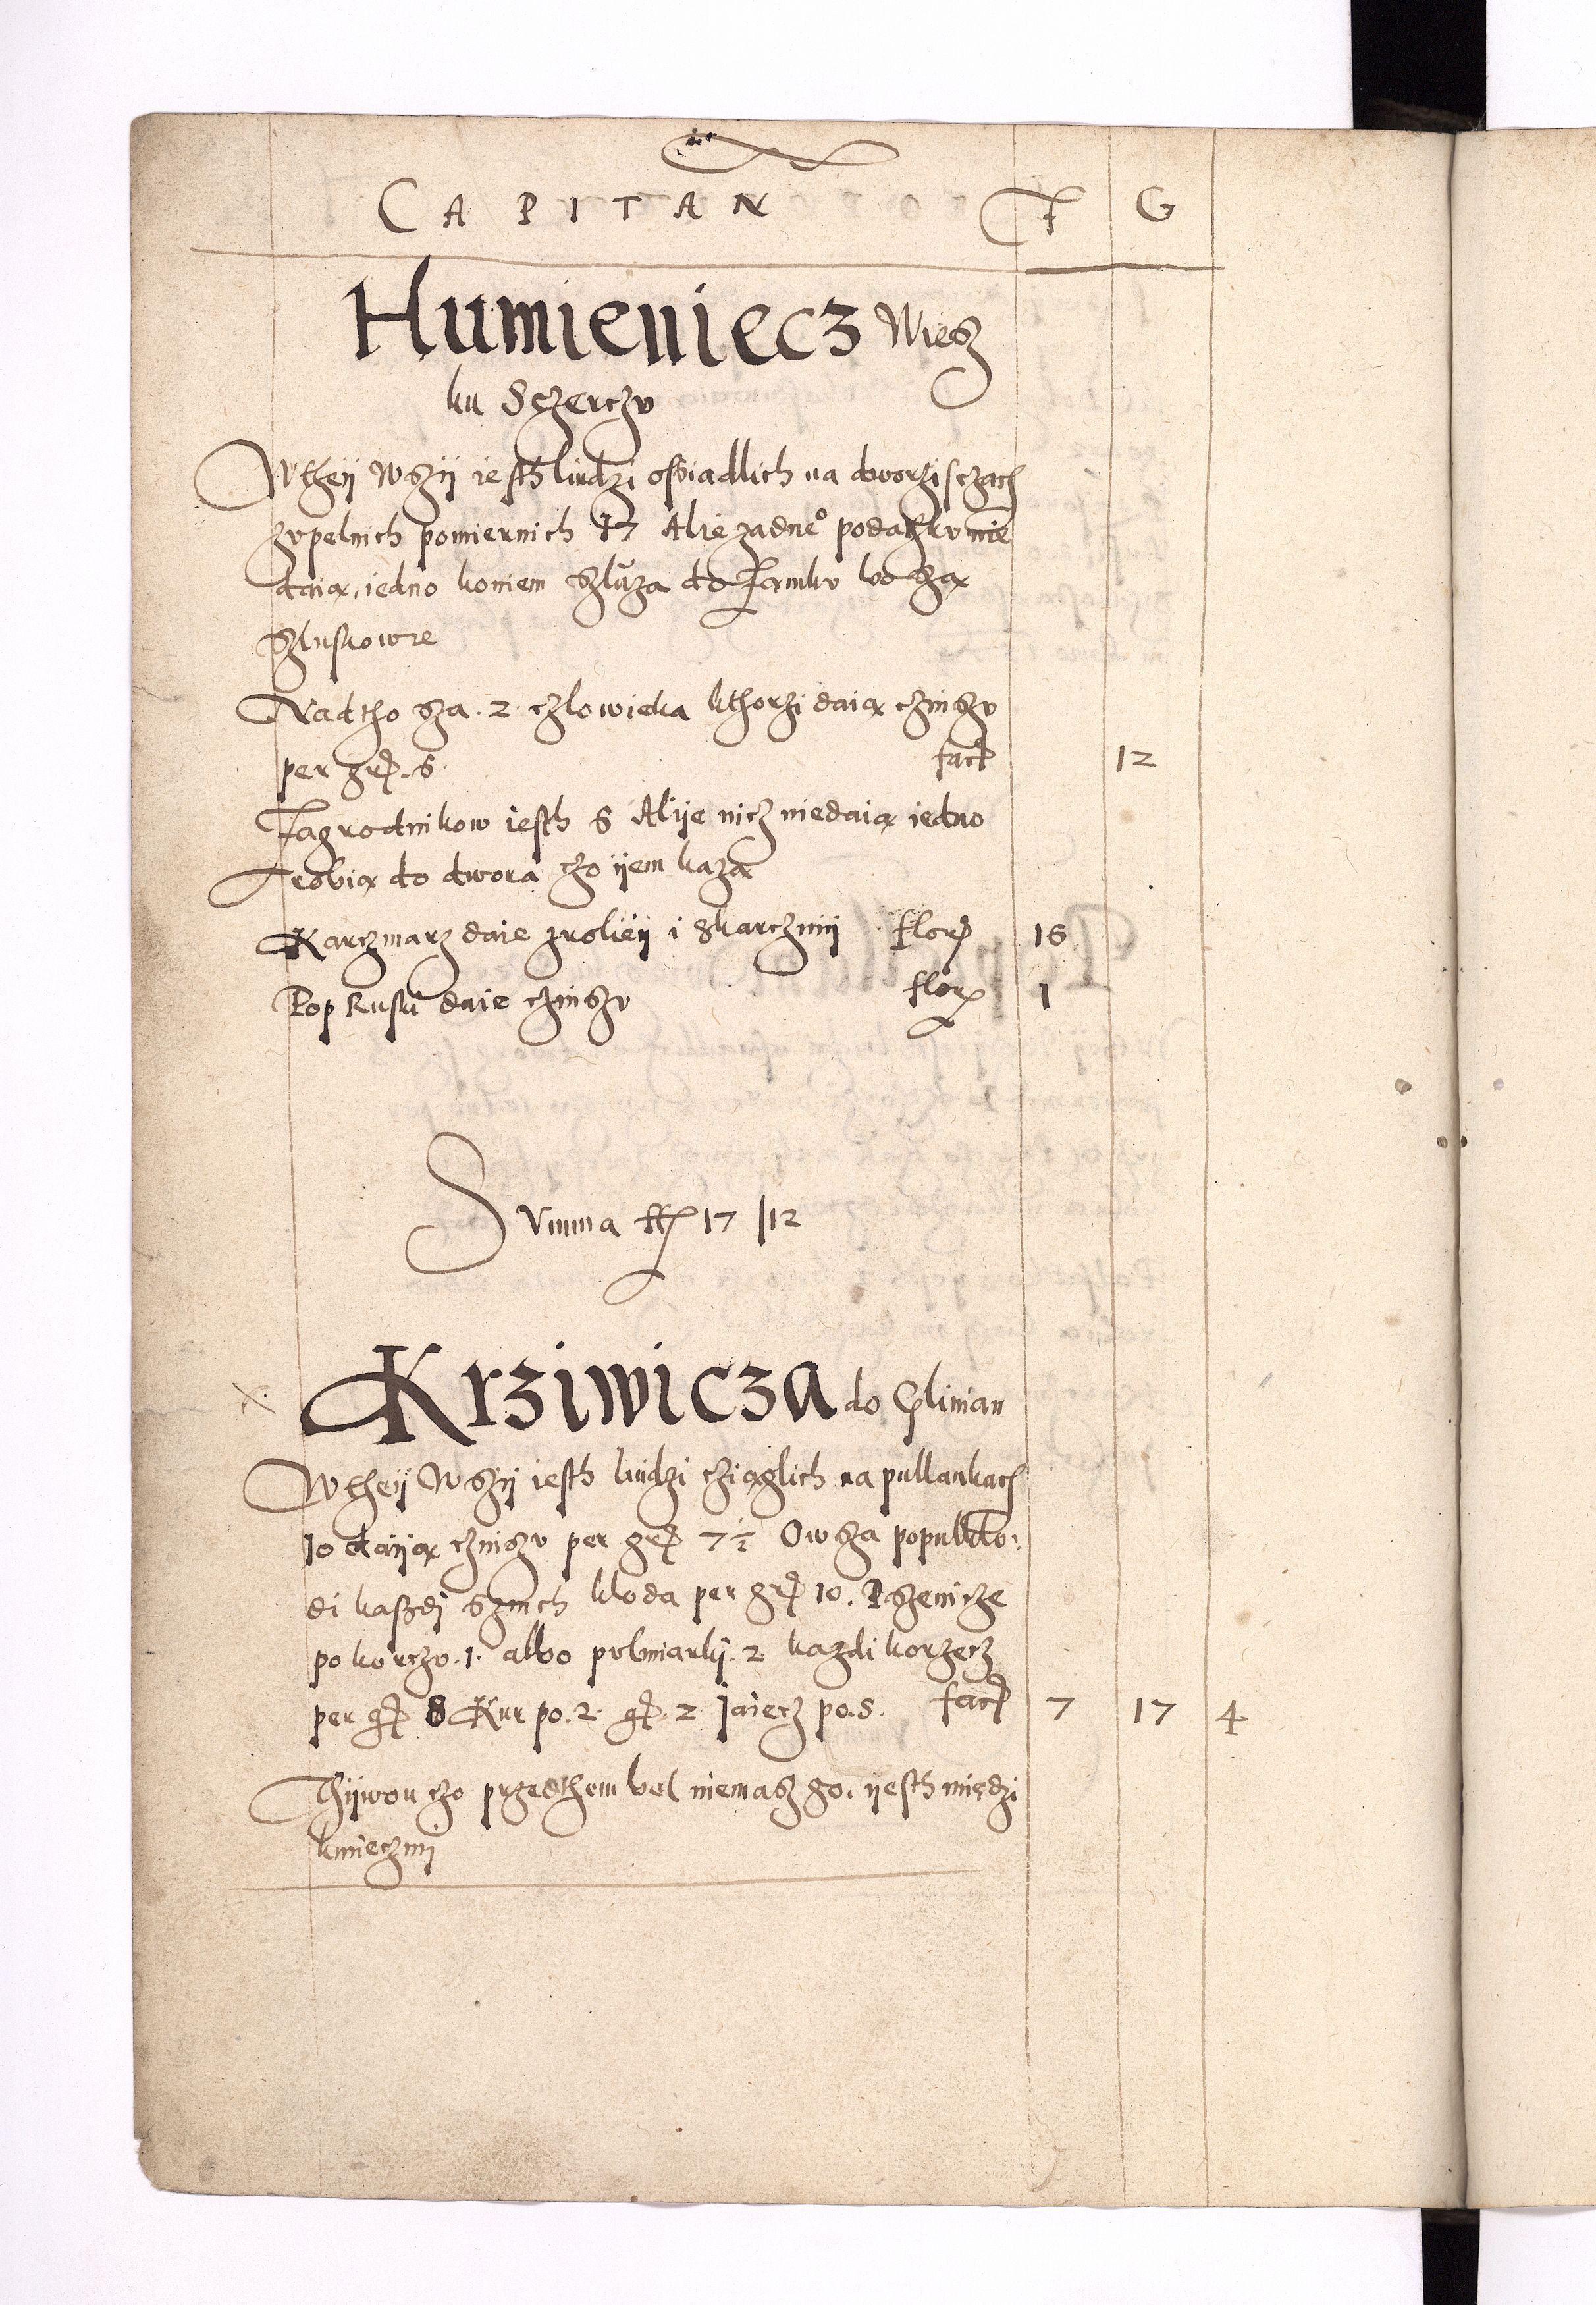 CAPITAN F G
Humieniecz Wiesz
ku Sczerczv
Wtheÿ Wszÿ iesth liudzi osiadlich na dworzisczach
zvpelnich pomiernich 17 Alie zadne° podathkv nie
daią, iedno koniem szluza do Zamkv bo szą
szluskowie
Nadtho sza 2 czlowieka kthorzi daią czinszv
per gr. 6. fact 12
Zagrodnikow iesth 6 Alije nicz niedaią iedno
robią do dwora czo ijem kazą
Karczmarz daie zrolieÿ i skarczmÿ flor 16
Pop Ruski daie czinszv flor 1
Svmma fl 17 | 12
Krziwicza do Glinian
Wtheÿ Wszÿ iesth liudzi cziąglich na pullankach
10 daiją czinszv per gr 7 ½ Owsza populklo:
di kaszdi sznich kloda per gr 10. Pszenicze
po korczv. 1. albo polmiarkij. 2 kazdi korzecz
per gr 8 Kur po. 2. gr. 2 Jaiecz po. 5. fact 7 17 4
Thijwon czo przedthem bel niemasz go, ijesth międzi
kmieczmi